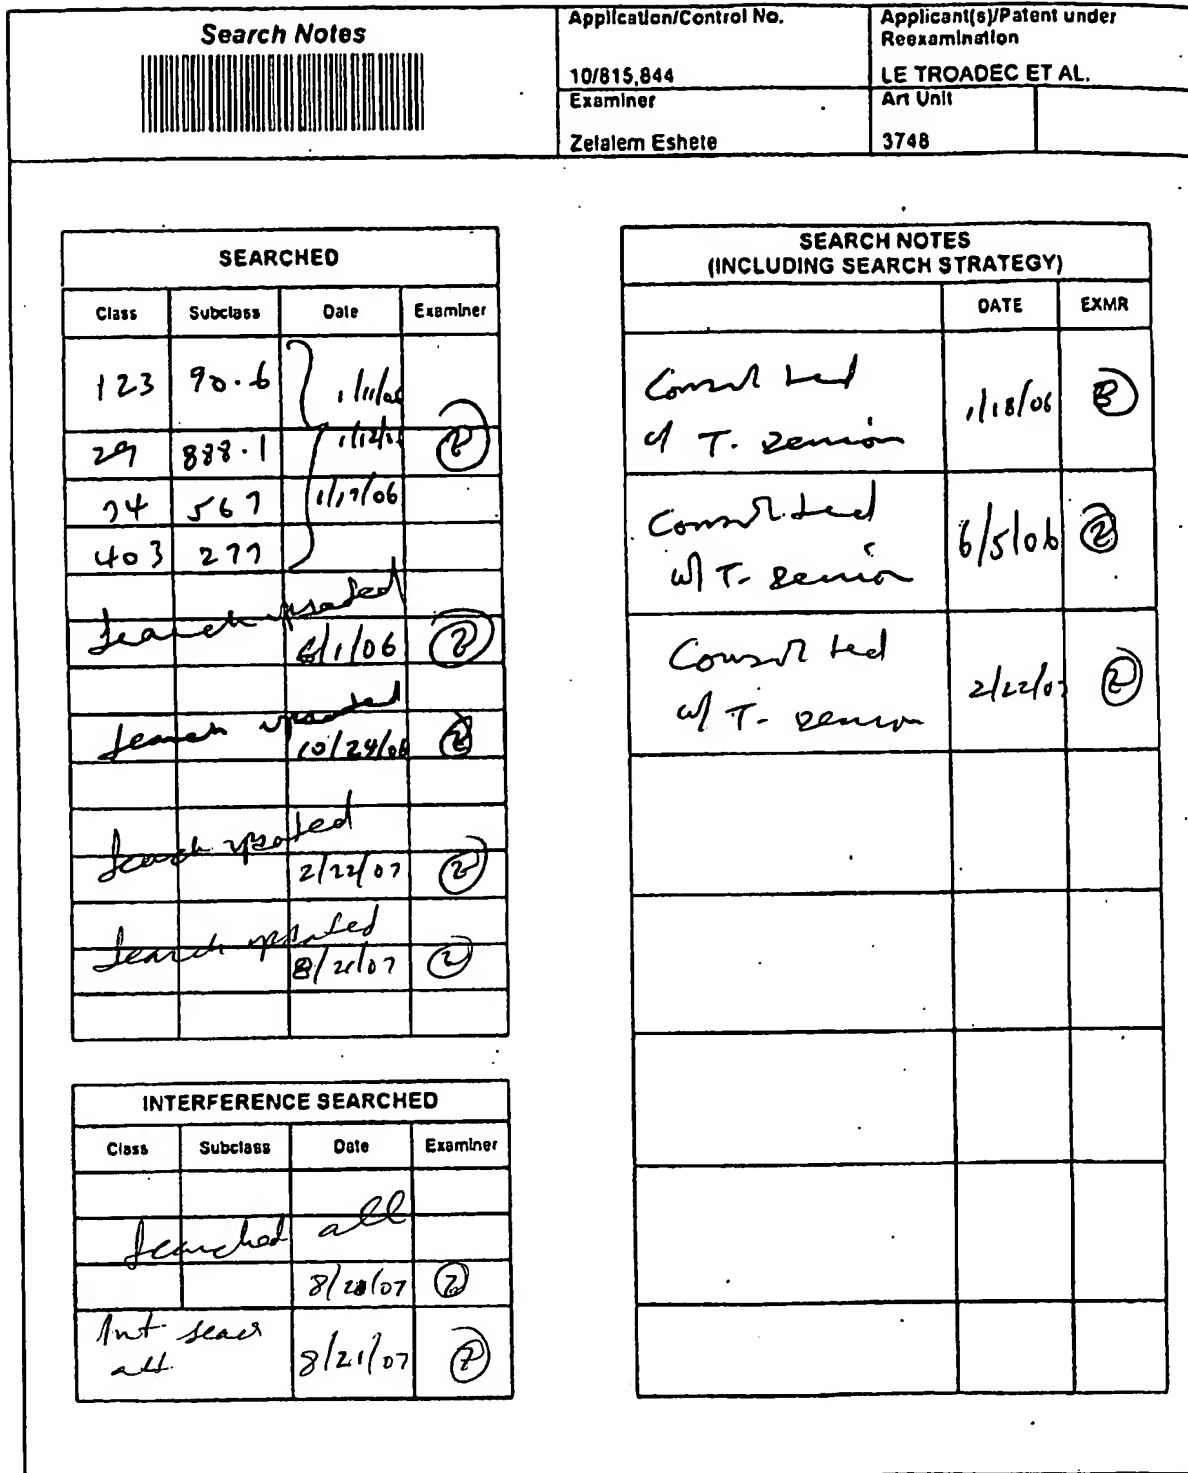 Search Notes
Application/Control No.
10/815,844
Applicant(s)/Patent under
Reexamination
LE TROADEC ET AL.
Examiner
Zelalem Eshete
Art Unit
3748
SEARCHED
Class Subclass Date Examiner
123 90.6 1/11/06
29 888.1 1/12/
74 567 1/17/06
403 277
Search updated
6/1/06
Search updated
10/24/06
Search updated
2/22/07
Search updated
8/21/07
INTERFERENCE SEARCHED
Class Subclass Date Examiner
Searched all
8/20/07
Int. search
all.
8/21/07
SEARCH NOTES
(INCLUDING SEARCH STRATEGY)
DATE EXMR
Consulted 1/18/06
w/ T. Denion
Consulted 6/5/06
w/ T. Denion
Consulted 2/22/07
w/ T. Denion